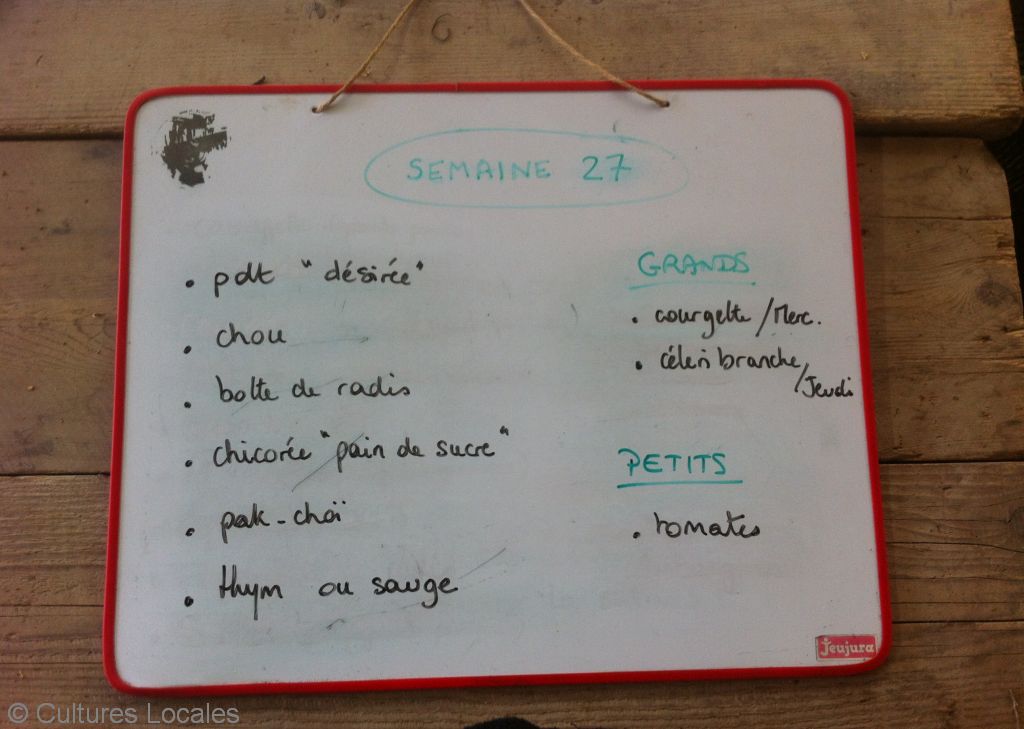 SEMAINE 27
• pdt "désirée"
• chou
• botte de radis
• chicorée "pain de sucre"
• pak-choï
• thym ou sauge
GRANDS
• courgette /Merc.
• céleri branche
/Jeudi
PETITS
• tomates
Jeujura
© Cultures Locales